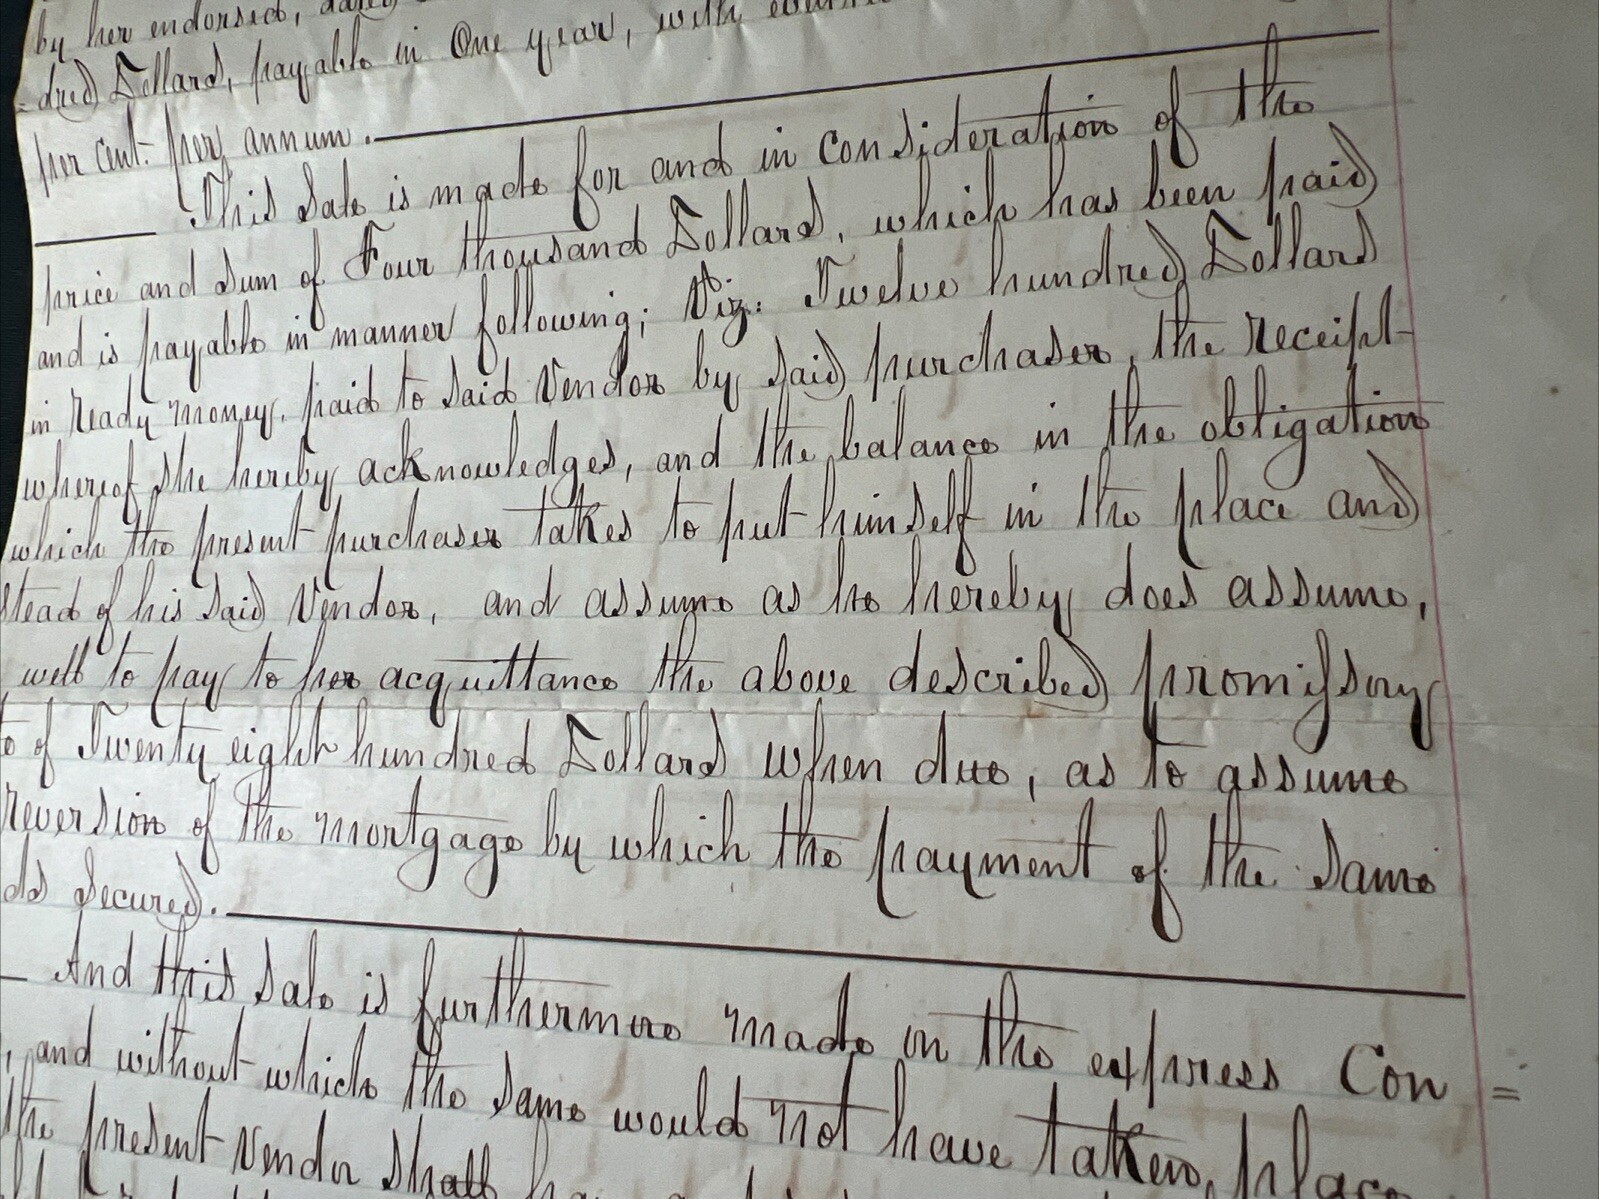 by her endorsed, dated
= dred Dollars, payable in One year, with
per cent. per annum.
This Sale is made for and in consideration of the
price and sum of Four thousand Dollars, which has been paid
and is payable in manner following; Viz: Twelve hundred Dollars
in ready money, paid to said Vendor by said purchaser, the receipt
whereof she hereby acknowledges, and the balance in the obligation
which the present purchaser takes to put himself in the place and
stead of his said Vendor, and assume as he hereby does assume,
well to pay to her acquittance the above described promissory
of Twenty eight hundred Dollars when due, as to assume
reversion of the mortgage by which the payment of the same
secured.
And this sale is furthermore made on the express Con =
, and without which the same would not have taken place
the present Vendor shall